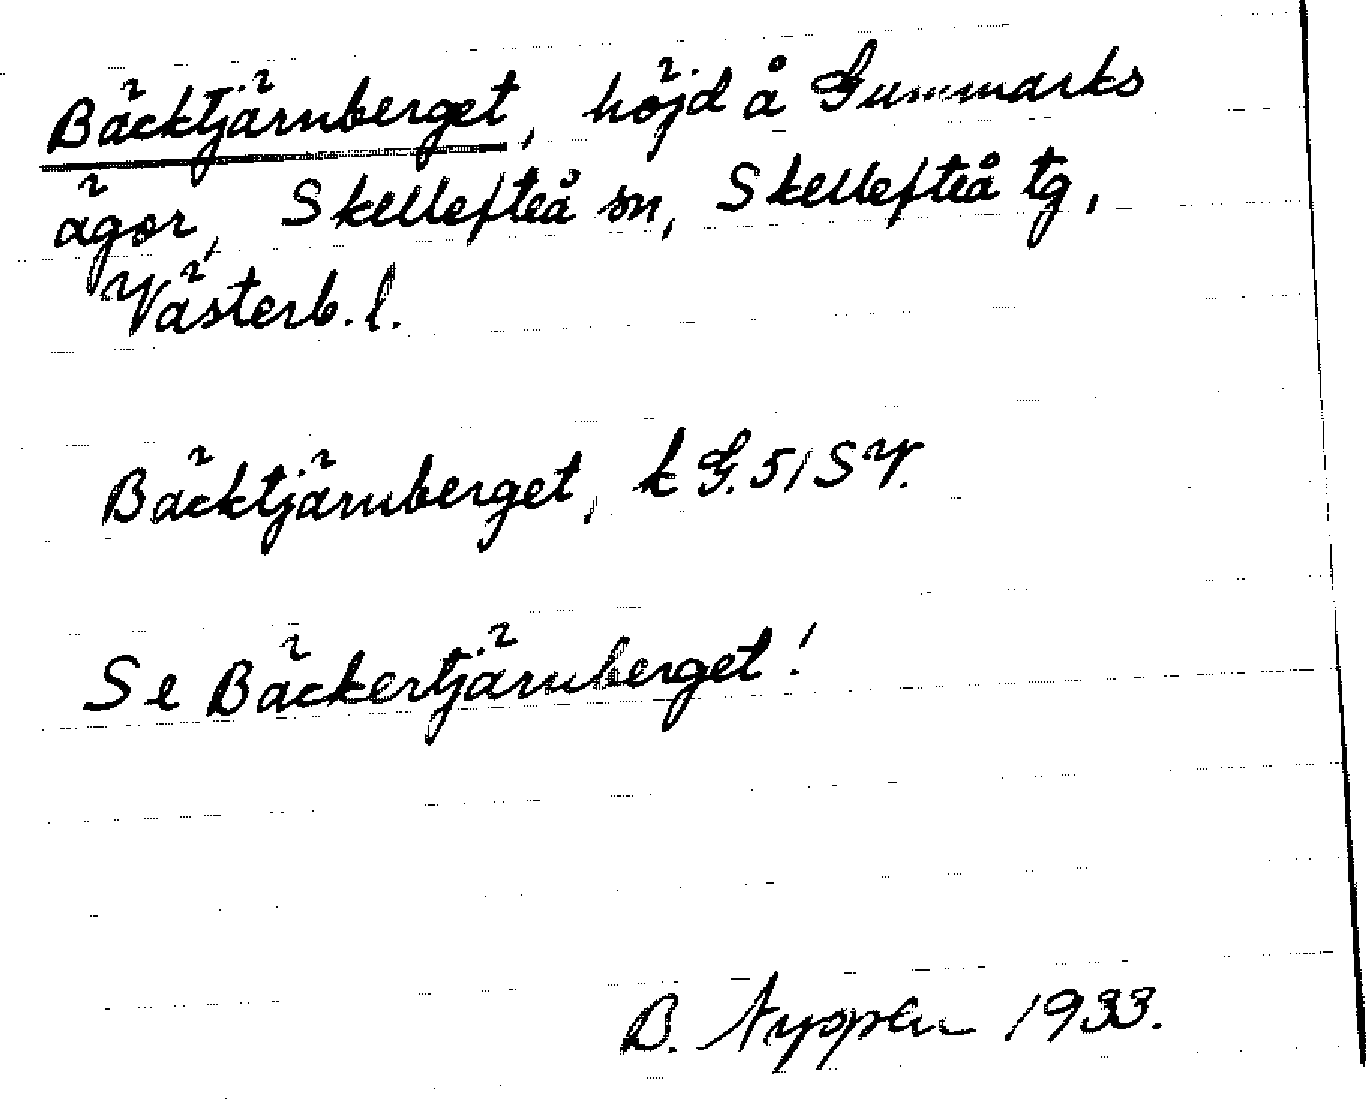 Bäcktjärnberget, höjd å Gummarks
ägor, Skellefteå sn, Skellefteå tg,
Västerb. l.
Bäcktjärnberget, k G. 51 SV.
Se Bäckertjärnberget!
B. 1933.